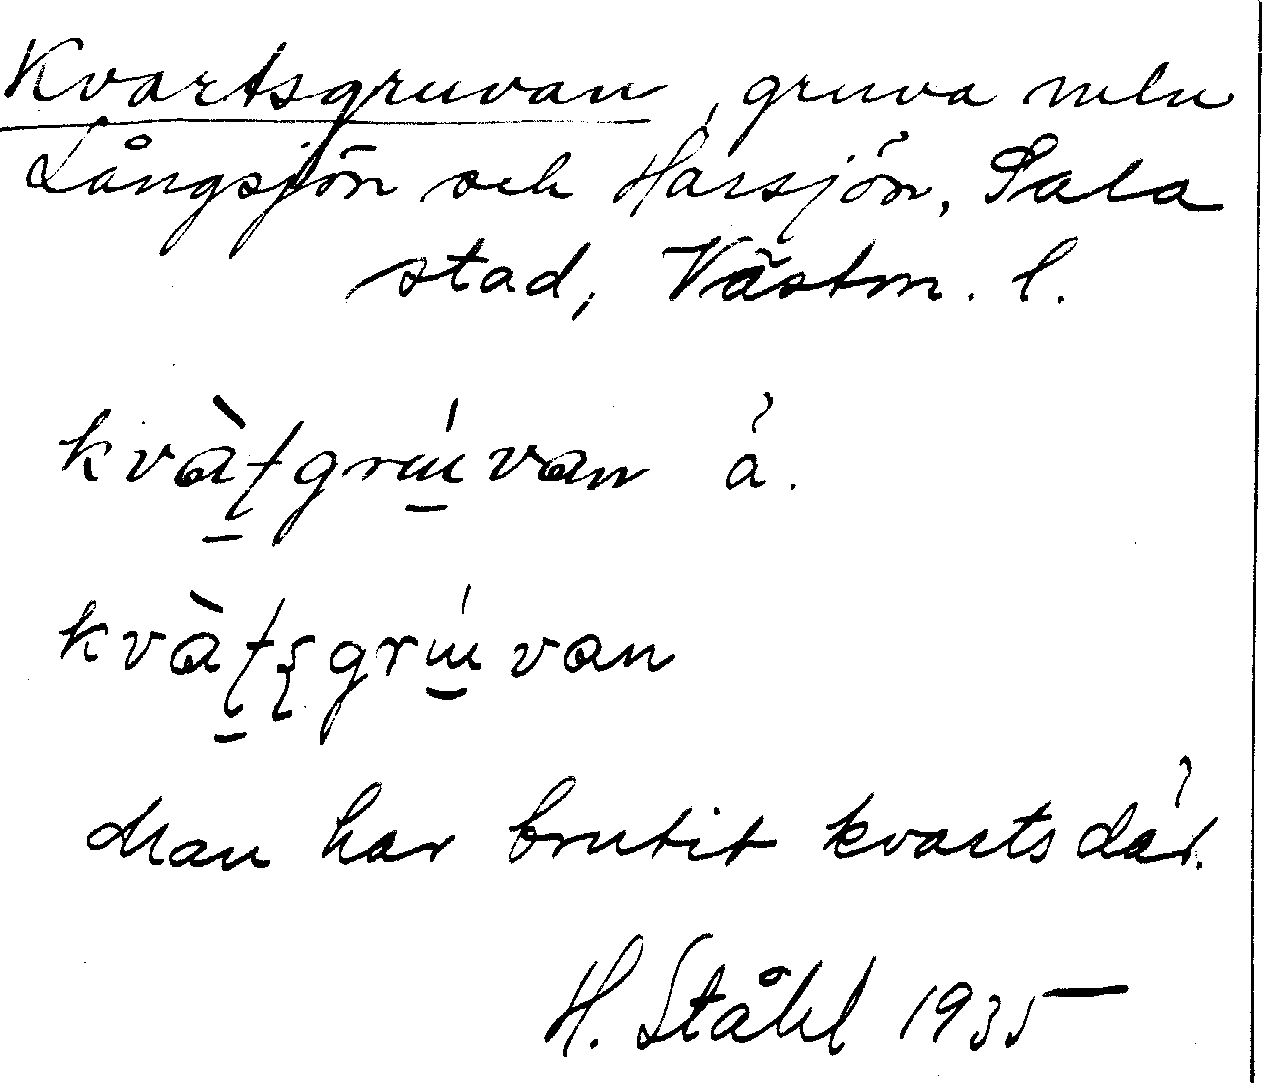 Kvartsgruvan, gruva mln
Långsjön och Harsjön, Sala
stad, Västm. l.
kvàʈgrɯ́van ä.
kvàʈʂgrɯ́van
Man har brutit kvarts där.
H. Ståhl 1935